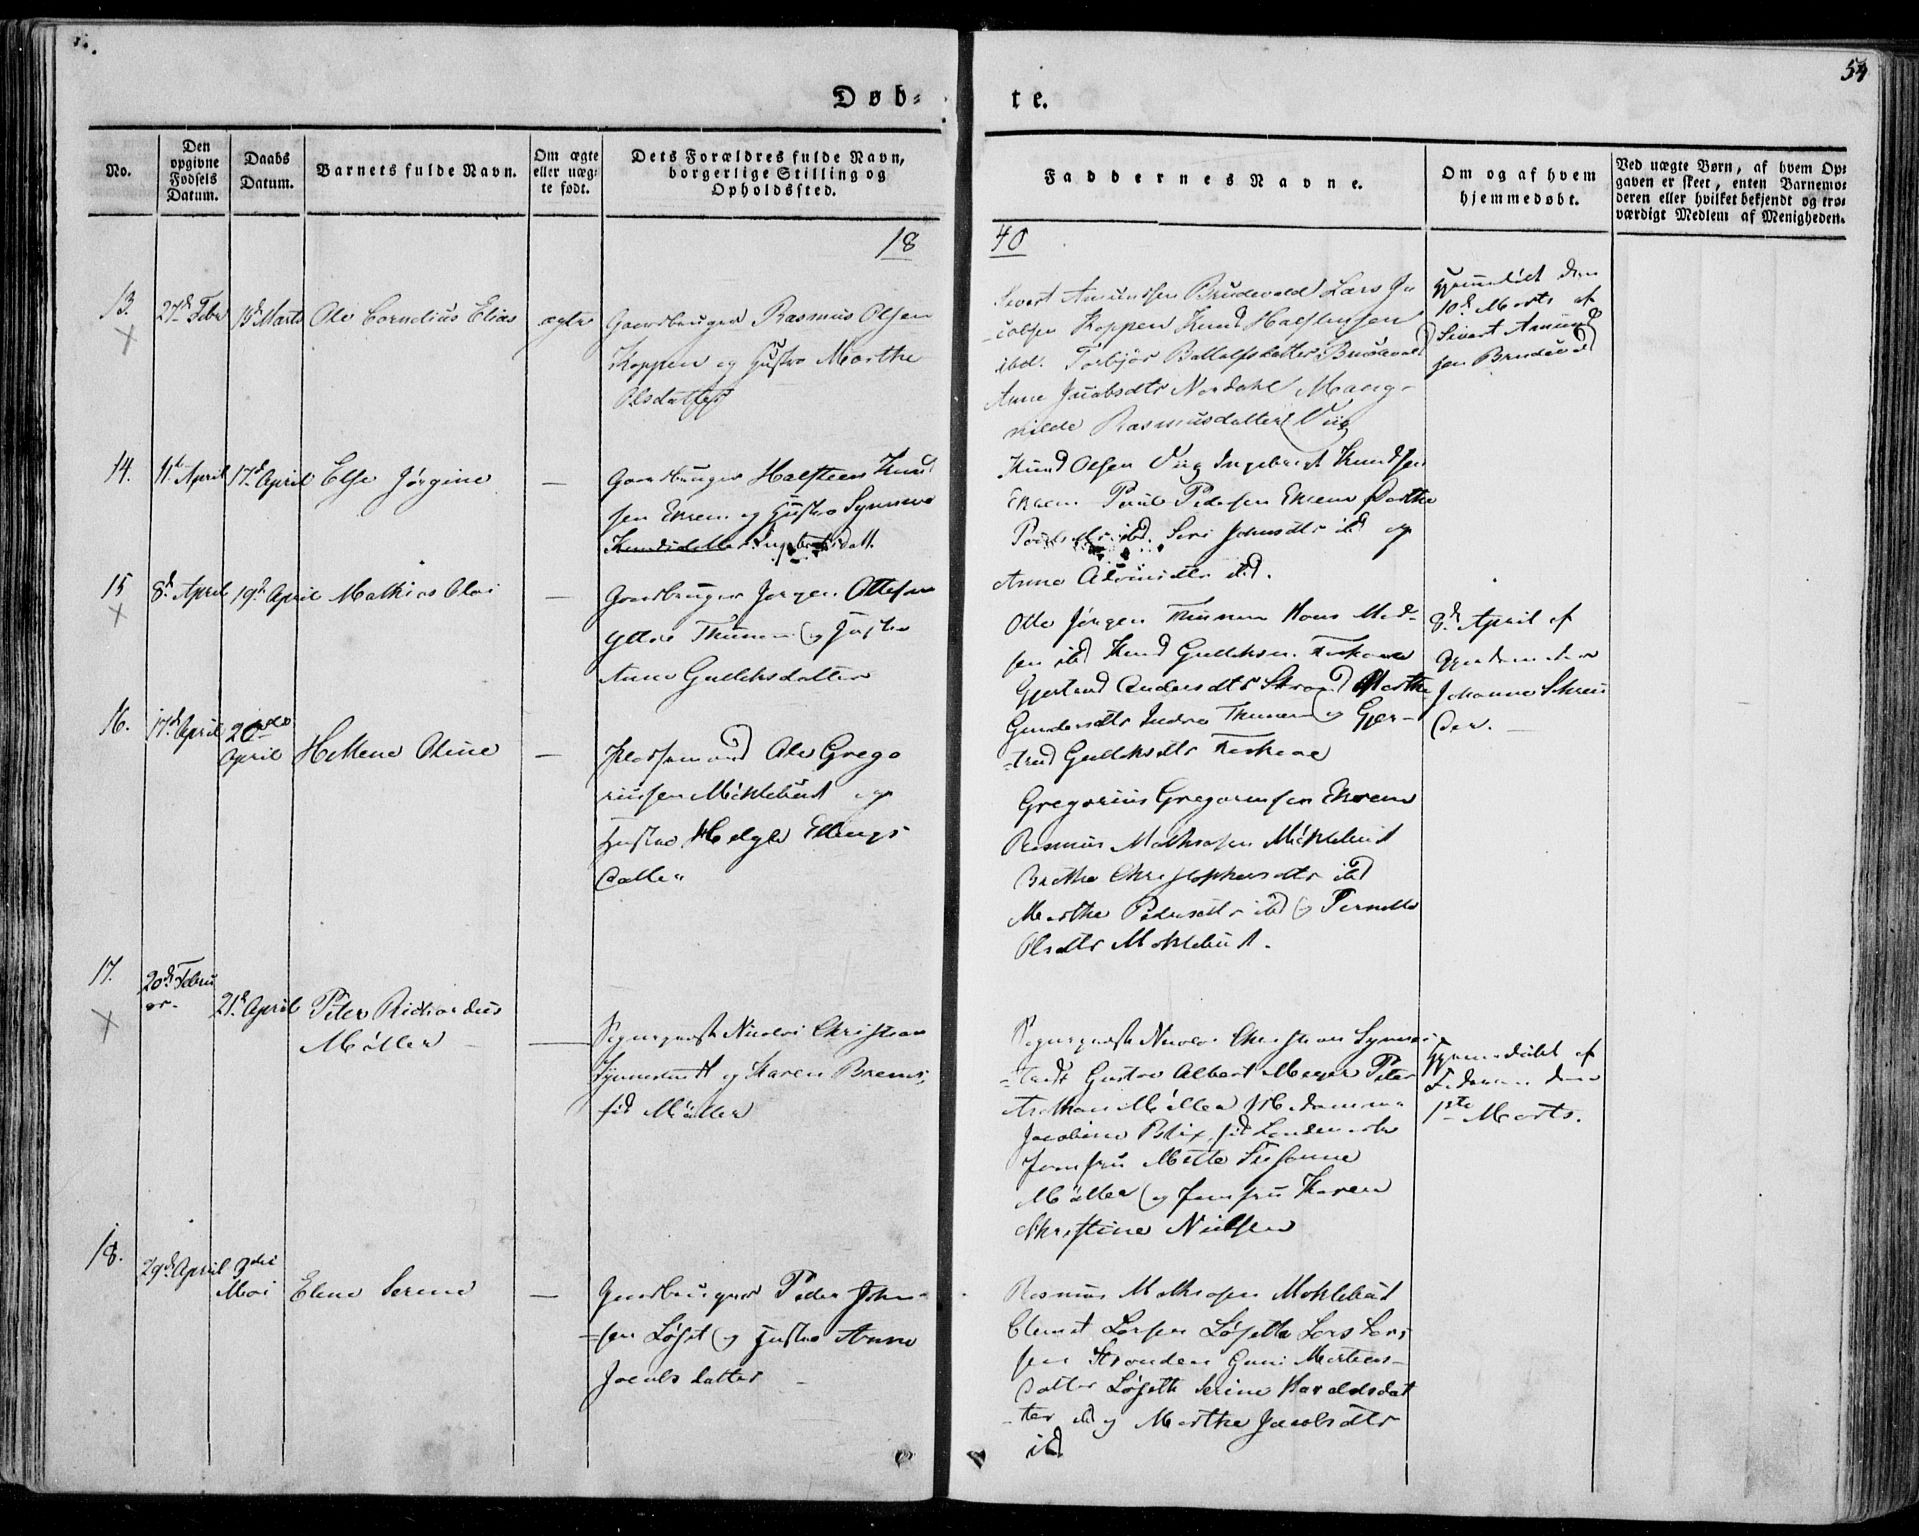 54
Døb-
te.
No.
Den opgivne Fødsels Datum.
Daabs Datum.
Barnets fulde Navn.
Om ægte eller uæg-
te født.
Dets Forældres fulde Navn,
borgerlige Stilling og
Opholdssted.
Faddernes Navne.
Om og af hvem
hjemmedøbt.
Ved uægte Børn, af hvem Op-
gaven er skeet, enten Barnemo-
deren eller hvilket bekjendt og tro-
værdigt Medlem af Menigheden.
18
40
13.
27d Febr
15d Marts
Ole Cornelius Elias
ægte
Gaardbruger Rasmus Olsen
Koppen og Hustro Marthe
Olsdatter
Sivert Amundsen Brudevold Lars Ja
cobsen Koppen Knud Halstensen
ibd. Torbjør Battolfsdatter Brudevold
Anne Jacobsdtr Nordahl Mang-
nilde Rasmusdatter Viig
Hjemmedøbt den
10d Marts af
Sivert Amund
sen Brudevold
14.
11te April
17d April
Else Jørgine
—
Gaardbruger Halsteen Knud
sen Ekrem og Hustro Synneve
Knudsdatter Ingebrigtsdatt.
Knud Olsen Viig Ingebrigt Knudsen
Ekrem Poul Pedersen Ekrem Marthe
ibd. Siri Johnsdtr ibd og
Anne ibd.
15
8d April
19d April
Mathias Olai
—
Gaardbruger Jørgen Ottesen
Yttre Thunem og Hustro
Anne Gulliksdatter
Otto Jørgen Thunem Hans Mad-
sen ibd Knud Gulliksen
Gjertrud Andersdtr Strand Marthe
Gundersdtr Indre Thunem og Gjer-
trud Gulliksdtr
8d April af
Gjordemoder
Johanna Schreu
der.
16.
17d April
20de
April
Hellene Oline
—
Pladsemand Ole Grego
riusen Möklebust og
Hustro Helge Ellings
datter
Gregorius Gregoriusen Ekrem
Rasmus Mathiasen Möklebust
Berthe Christophersdtr ibd
Marthe Pedersdtr ibd og Pernelle
Olsdtr Moklebust.
17.
20d Febru
ar.
21d April
Peter Richardus
Møller
—
Nicolai Christian
Synnestvedt og Karen Brems,
fød Møller
Nicolai Christian Synnes
-tvedt Gustav Albert Meyer Peter
Arethan Møller Madamme
Jacobine Blix, fød
Jomfru Mette Susanne
Møller og Jomfru Karen
Christine Nielsen
Hjemmedøbt af
Faderen den
1ste Marts.
18.
29d April
9de
Mai
Elene Serine
—
Gaardbruger Peder John-
-sen Løset og Hustro Anne
Jacobsdatter
Rasmus Mathiasen Moklebust
Clemet Larsen Løseth Lars Lars
sen Stranden Guni Martens-
datter Løseth Serine Haraldsdat
-ter ibd og Marthe Jacobsdtr
ibd